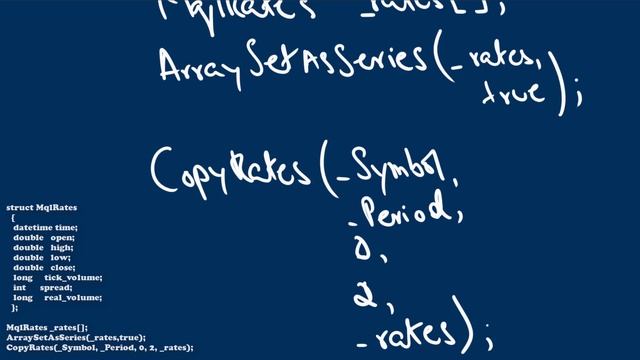 MqlRates _rates[];
ArraySetAsSeries(_rates,
true);
CopyRates(_Symbol,
_Period,
0,
2,
_rates);
struct MqlRates
{
datetime time;
double open;
double high;
double low;
double close;
long tick_volume;
int spread;
long real_volume;
};
MqlRates _rates[];
ArraySetAsSeries(_rates,true);
CopyRates(_Symbol, _Period, 0, 2, _rates);